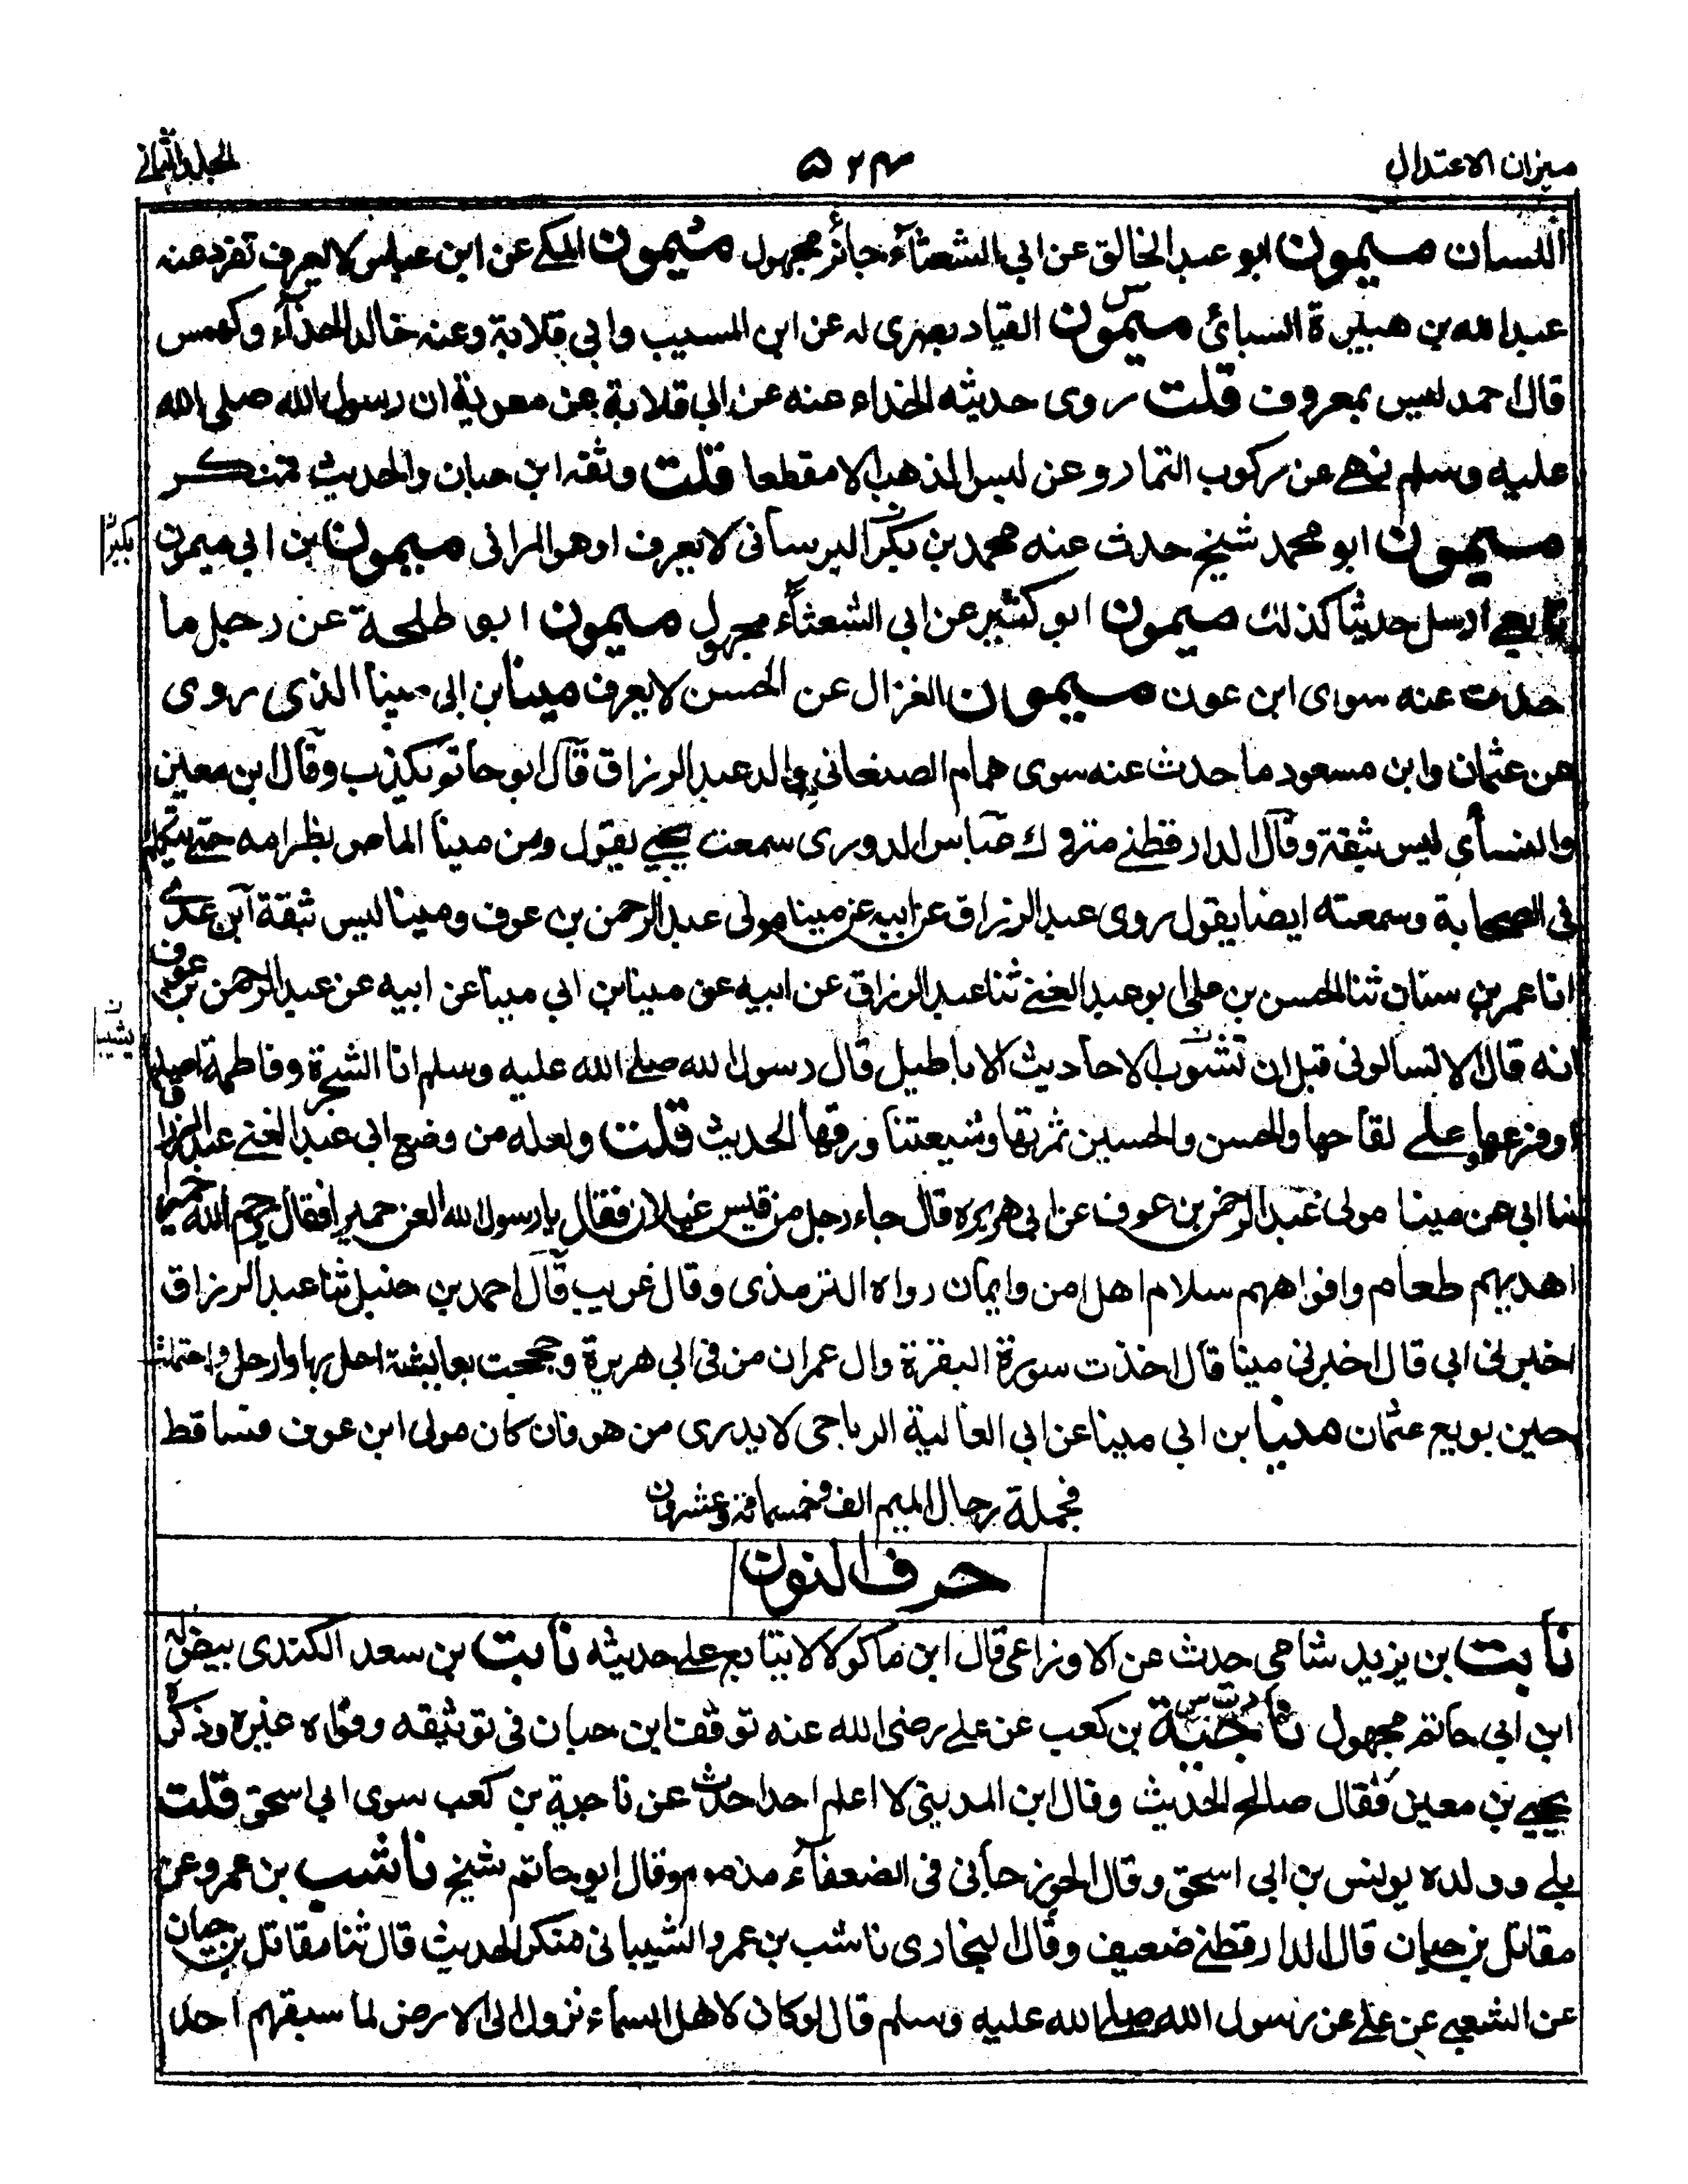 ميزان الاعتدال
۵۲۴
الجلد الثانى
اللسان ميمون ابو عبد الخالق عن ابي الشعثاء جائز مجهول ميمون المكے عن ابن عباس لا يعرف تفرد عنه
عبد الله بن هبيرة السبائى ميمون القناد بصرى له عن ابن المسيب وابي قلابة وعنه خالد الحذآء وكهمس
قال احمد ليس بمعروف قلت روى حديثه الحذاء عنه عن ابي قلابة عن معوية ان رسول الله صلى الله
عليه وسلم نهے عن ركوب النمار وعن لبس الذهب الا مقطعا قلت وثقه ابن حبان والحديث منكر
ميمون ابو محمد شيخ حدث عنه محمد بن بكر البرسانى لا يعرف او هو المرائى ميمون بن ابي ميمون
تابعے ارسل حديثا كذلك ميمون ابو كثير عن ابي الشعثآء مجهول ميمون ابو طلحة عن رجل ما
حدث عنه سوى ابن عون ميمون الغزال عن الحسن لا يعرف مينا بن ابي مينا الذى روى
عن عثمان وابن مسعود ما حدث عنه سوى همام الصنعاني والد عبد الرزاق قال ابو حاتم يكذب وقال ابن معين
والنسأي ليس بثقة وقال الدارقطنے متروك عباس الدورى سمعت يحيے يقول ومن مينا الماص بظر امه حتے يتكلم
فى الصحابة وسمعته ايضا يقول روى عبد الرزاق عن ابيه عن مينا مولى عبد الرحمن بن عوف ومينا ليس بثقة ابن عدے
انا عمر بن سنان ثنا الحسن بن على ابو عبد الغنے ثنا عبد الرزاق عن ابيه عن مينا بن ابي مينا عن ابيه عن عبد الرحمن بن عوف
انه قال الا تسألونى قبل ان تشوب الاحاديث الاباطيل قال رسول الله صلے الله عليه وسلم انا الشجرة وفاطمة اصلها
او فرعها وعلے لقاحها والحسن والحسين ثمرتها وشيعتنا ورقها الحديث قلت ولعله من وضع ابي عبد الغنے عبد الرزاق
ثنا ابي عن مينا مولى عبد الرحمن بن عوف عن ابي هريره قال جاء رجل من قيس غيلان فقال يا رسول الله العن حميرا فقال رحم الله حميرا
اهديهم طعام وافواههم سلام اهل امن وايمان رواه الترمذى وقال غريب قال احمد بن حنبل ثنا عبد الرزاق
اخبرنى ابي قال اخبرنى مينا قال اخذت سورة البقرة وال عمران من فى ابي هريرة وحججت بعايشة احل بها وارحل واحتملت
حين بويع عثمان مينا بن ابي مينا عن ابي العالية الرياحى لا يدرى من هو فان كان مولى ابن عوف فساقط
فجملة رجال الميم الف وخمسمائة وعشرون
حرف النون
نابت بن يزيد شامى حدث عن الاوزاعى قال ابن ماكولا لا يتابع علے حديثه نابت بن سعد الكندى بيض له
ابن ابي حاتم مجهول ناجية بن كعب عن علے رضى الله عنه توقف ابن حبان فى توثيقه وقواه غيره وذكره
يحيے بن معين فقال صالح الحديث وقال ابن المدينى لا اعلم احدا حدث عن ناجية بن كعب سوى ابي اسحق قلت
بلے وولده يونس بن ابي اسحق وقال الجوزجانى فى الضعفآء مذموم وقال ابو حاتم شيخ ناشب بن عمرو عن
مقاتل بن حيان قال الدارقطنے ضعيف وقال البخارى ناشب بن عمرو الشيبانى منكر الحديث قال ثنا مقاتل بن حيان
عن الشعبے عن علے عن رسول الله صلے الله عليه وسلم قال لو كان لاهل السماء نزول الى الارض لما سبقهم احد